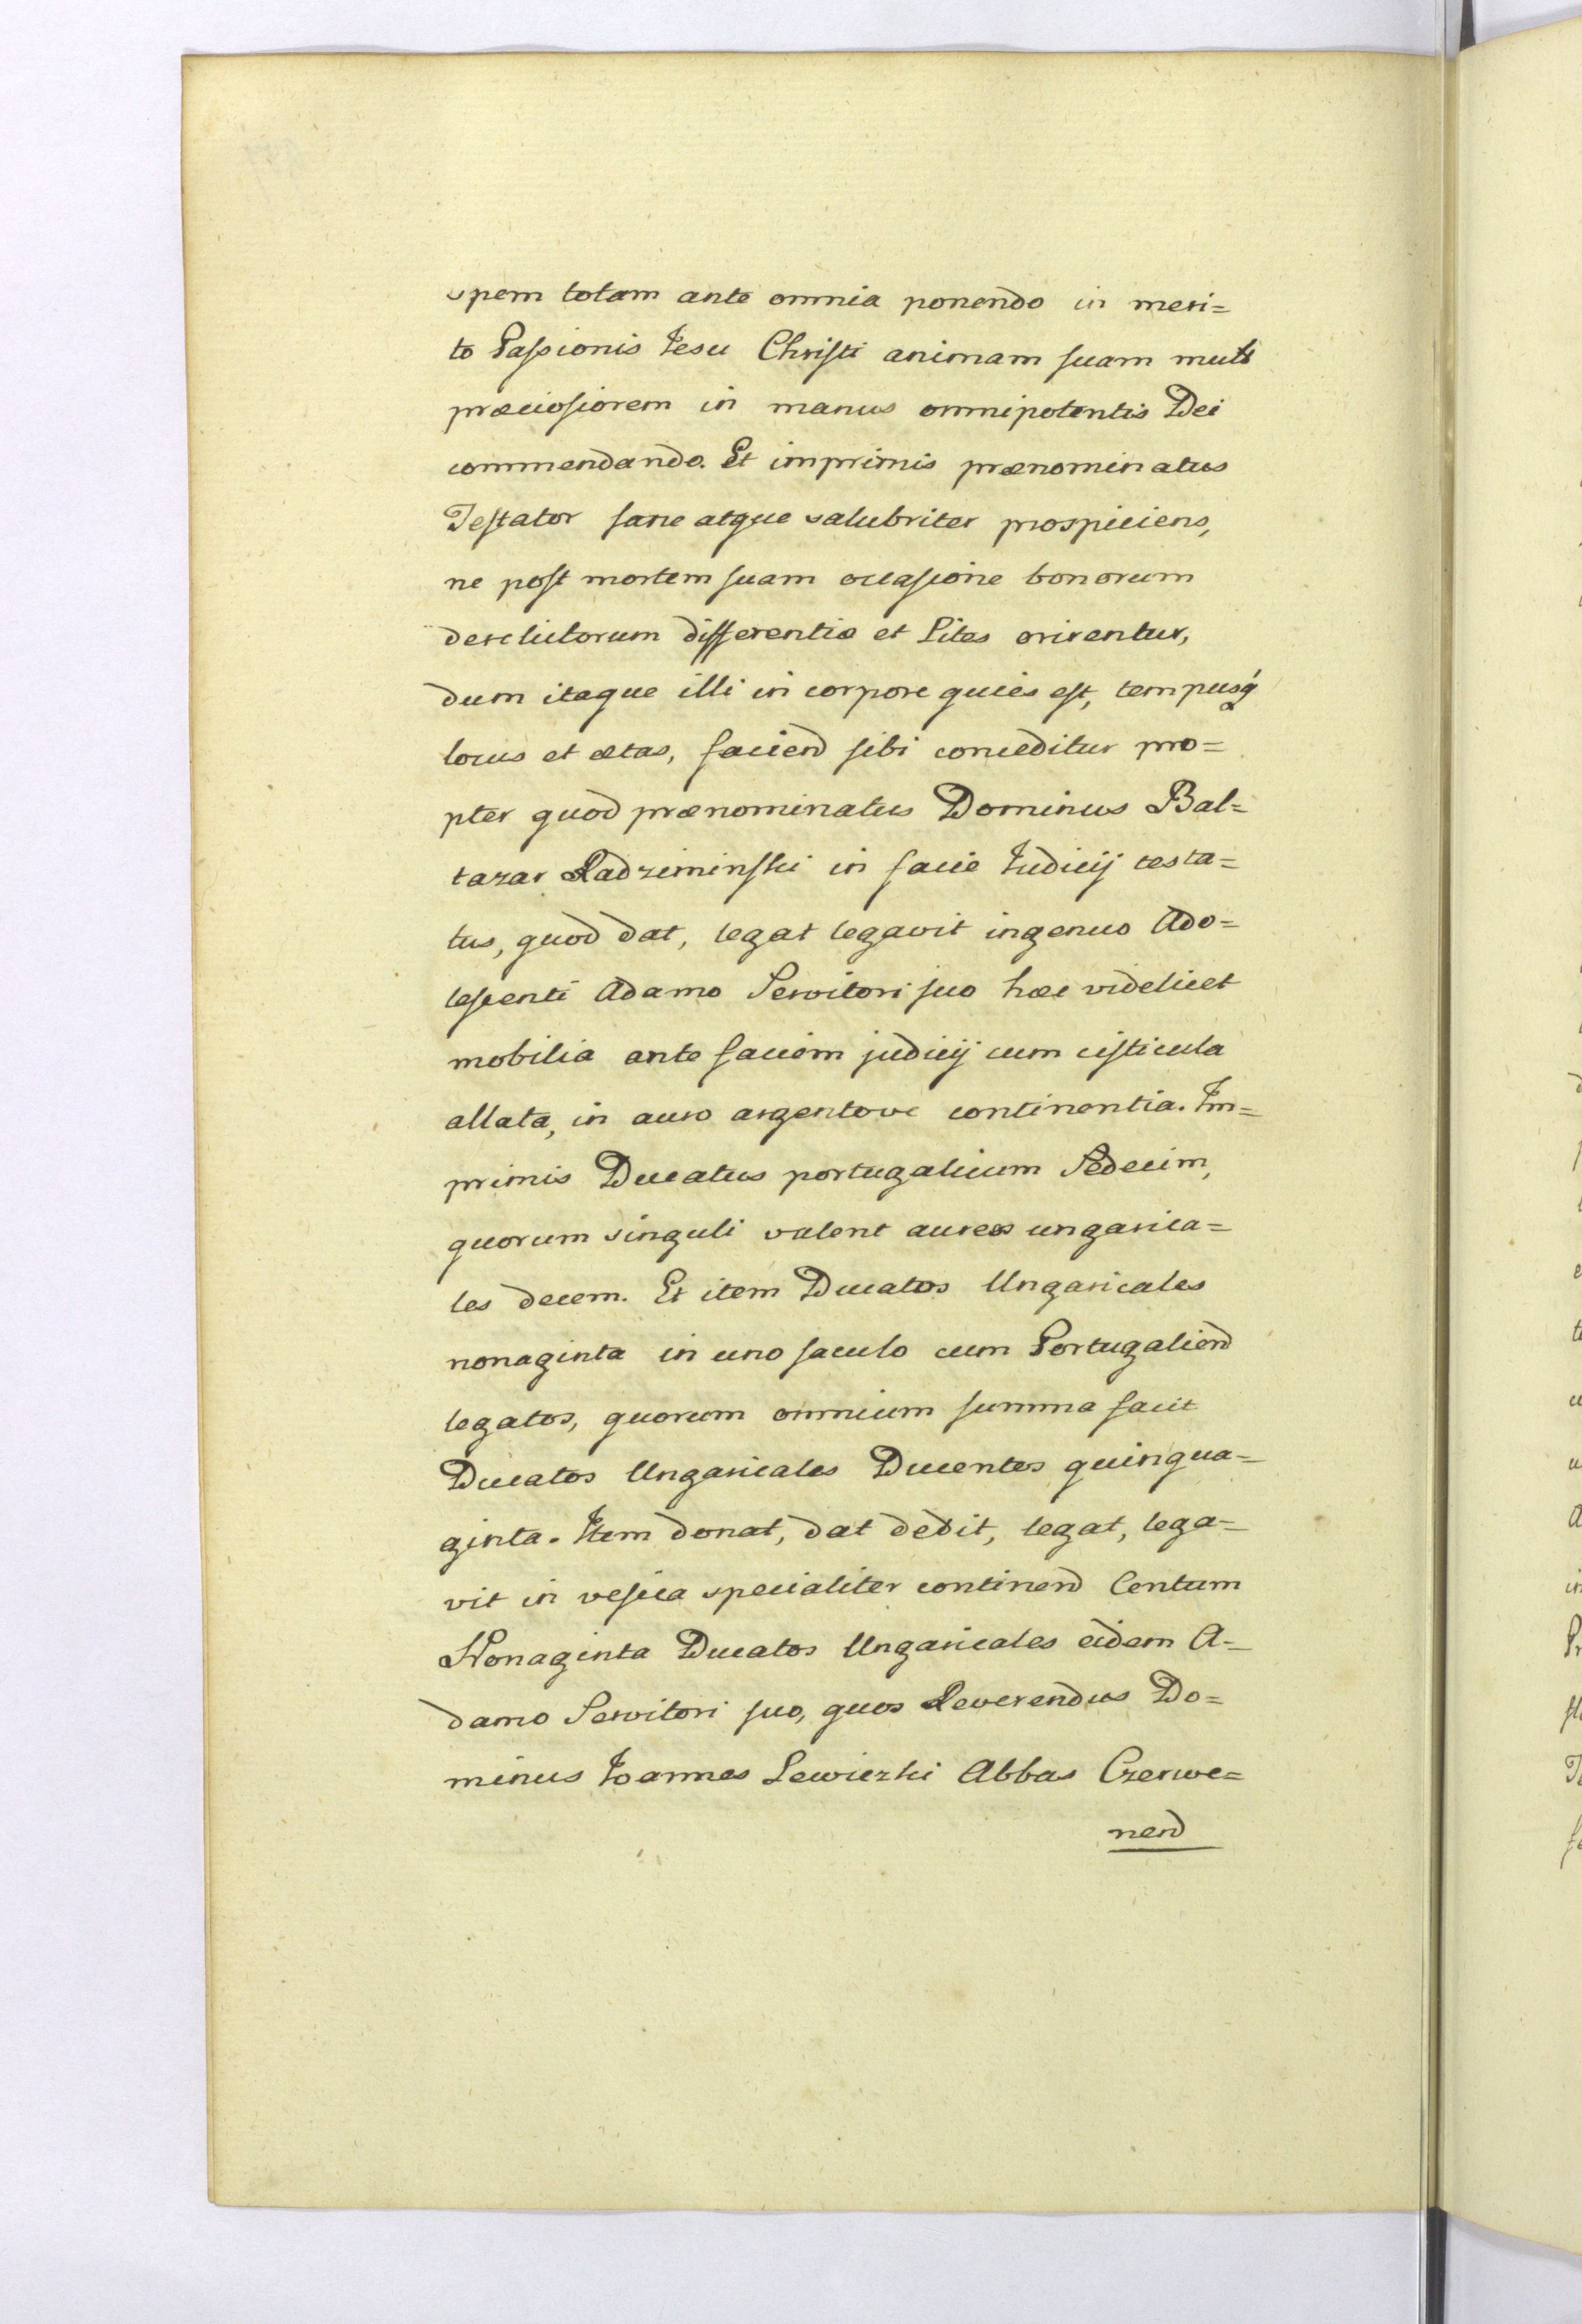 spem totam ante omnia ponendo in meri=
to Passionis Jesu Christi animam suam multo
præciosiorem in manus omnipotentis Dei
commendando. Et imprimis prænominatus
Testator sane atque salubriter prospiciens,
ne post mortem suam occasione bonorum
derelictorum differentiæ et Lites orirentur,
dum itaque illi in corpore quies est, tempusq́
locus et ætas, faciend sibi conceditur pro=
pter quod prænominatus Dominus Bal=
tazar Radziminski in facie Judicij testa=
tus, quod dat, legat legavit ingenuo Ado=
lescenti Adamo Servitori suo hæc videlicet
mobilia ante faciem judicij cum cisticula
allata, in auro argentove continentia. Im=
primis Ducatus portugalicum Sedecim,
quorum singuli valent aureos ungarica=
les decem. Et item Ducatos Ungaricales
nonaginta in uno saculo cum Portugaliend
legatos, quorum omnium summa facit
Ducatos Ungaricales Ducentos quinqua=
ginta. Item donat, dat dedit, legat, lega=
vit in vesica specialiter continend Centum
Nonaginta Ducatos Ungaricales eidem A=
damo Servitori suo, quos Reverendus Do=
minus Joannes Lewiczki Abbas Czerwe=
nend